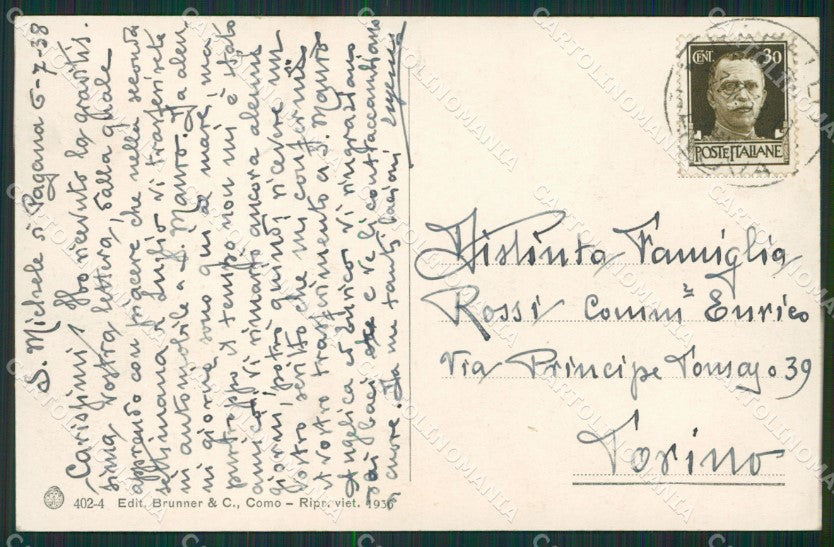 S. Michele di Pagana 6-7-38
Carissimi, Ho ricevuto la graditis
sima Vostra lettera, dalla quale
apprendo con piacere che nella seconda
settimana di Luglio vi trasferirete
in automobile a S. Mauro. Da alcu
ni giorni sono qui al mare, ma
purtroppo il tempo non mi è stato
amico. Vi rimango ancora alcuni
giorni, potrò quindi ricevere un
Vostro scritto che mi confermi
il vostro trasferimento a S. Mauro
Angelica ed Enrico vi ringraziano
dei baci che e ve li contraccambiano
di cuore. Da me tanti bacioni Eugenia
CENT. 30
POSTE ITALIANE
Distinta Famiglia
Rossi Comm. Enrico
Via Principe Tomaso 39
Torino
402-4 Edit. Brunner & C., Como – Ripr. viet. 1936
CARTOLINOMANIA